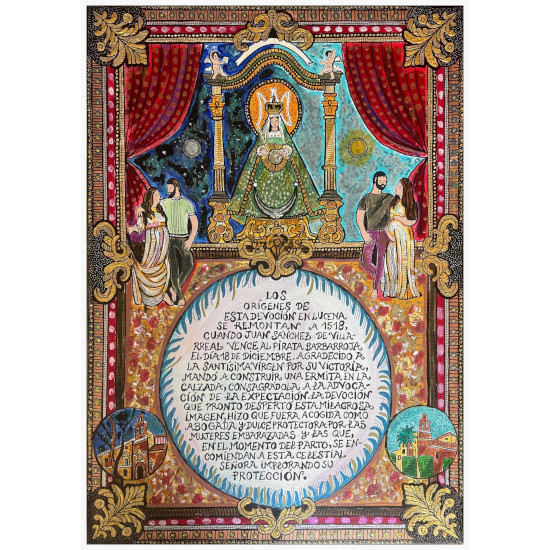 LOS
ORÍGENES DE
ESTA DEVOCIÓN EN LUCENA
SE REMONTAN A 1518,
CUANDO JUAN SÁNCHEZ DE VILLA-
RREAL VENCE AL PIRATA BARBARROJA,
EL DÍA 18 DE DICIEMBRE. AGRADECIDO A
LA SANTÍSIMA VIRGEN POR SU VICTORIA,
MANDÓ A CONSTRUIR UNA ERMITA EN LA
CALZADA, CONSAGRADOLA A LA ADVOCA-
CIÓN DE LA EXPECTACIÓN. LA DEVOCIÓN
QUE PRONTO DESPERTÓ ESTA MILAGROSA
IMAGEN, HIZO QUE FUERA ACOGIDA COMO
ABOGADA Y DULCE PROTECTORA POR LAS
MUJERES EMBARAZADAS Y LAS QUE,
EN EL MOMENTO DEL PARTO, SE EN-
COMIENDAN A ESTA CELESTIAL
SEÑORA IMPLORANDO SU
PROTECCIÓN.